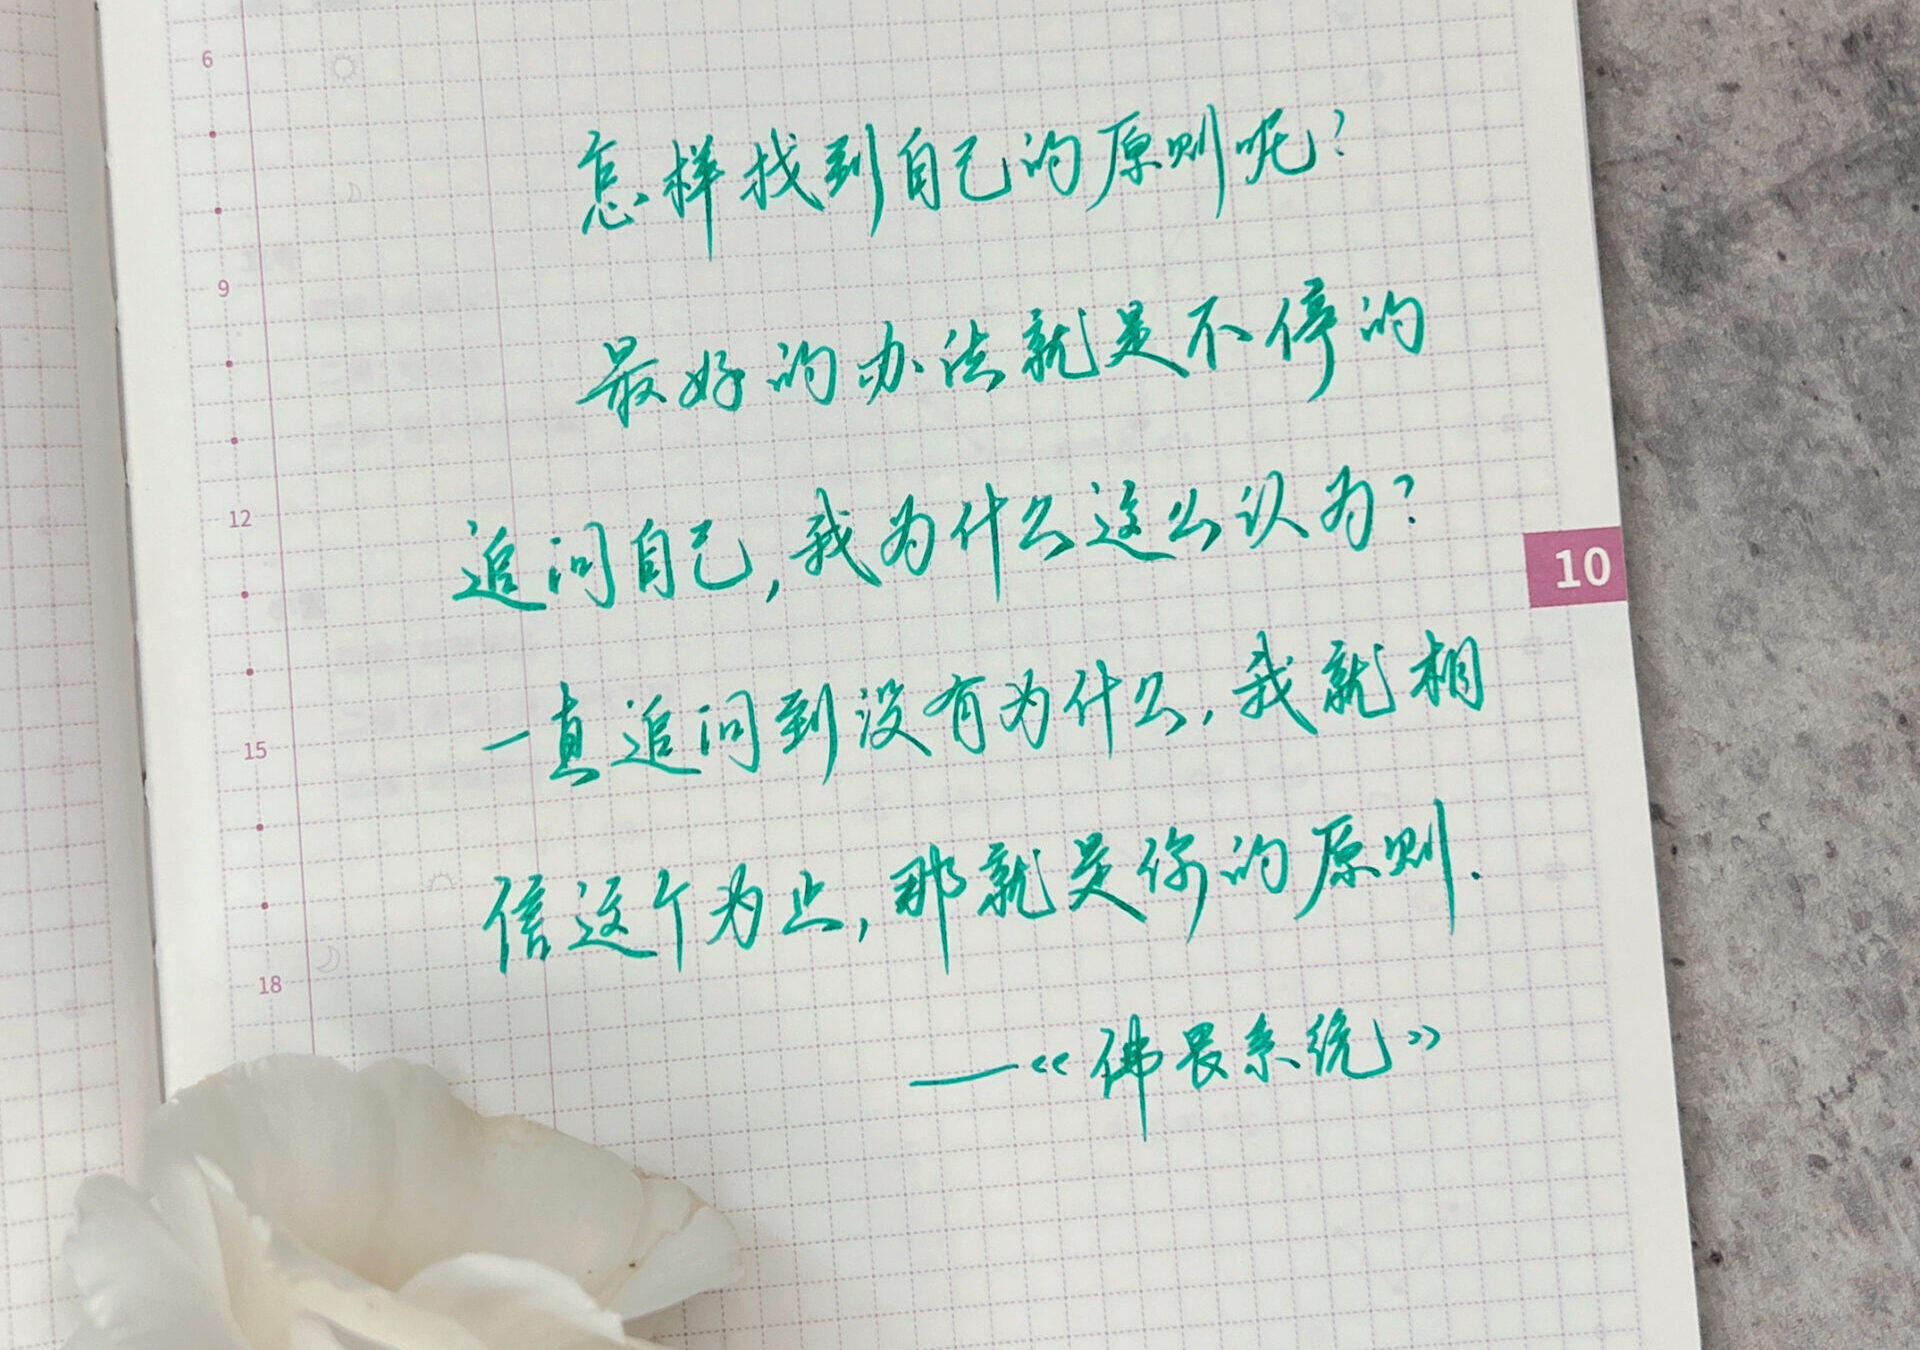 6
9
12
15
18
10
怎样找到自己的原则呢？
最好的办法就是不停的
追问自己，我为什么这么认为？
一直追问到没有为什么，我就相
信这个为止，那就是你的原则．
——《佛畏系统》